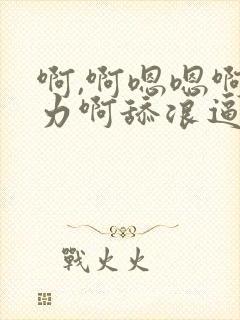 啊,啊嗯嗯啊
力啊舔浪逼
戰火火